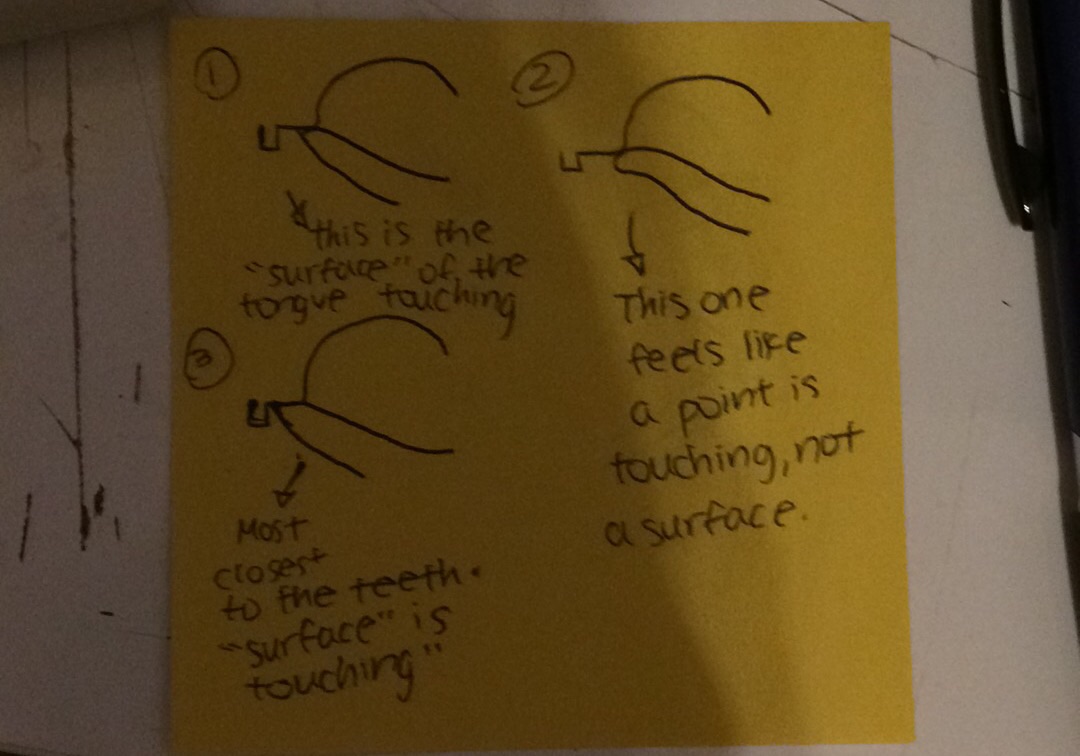 ①
this is the
"surface" of the
tongue touching
②
This one
feels like
a point is
touching, not
a surface.
③
Most
closest
to the teeth.
"surface" is
touching"